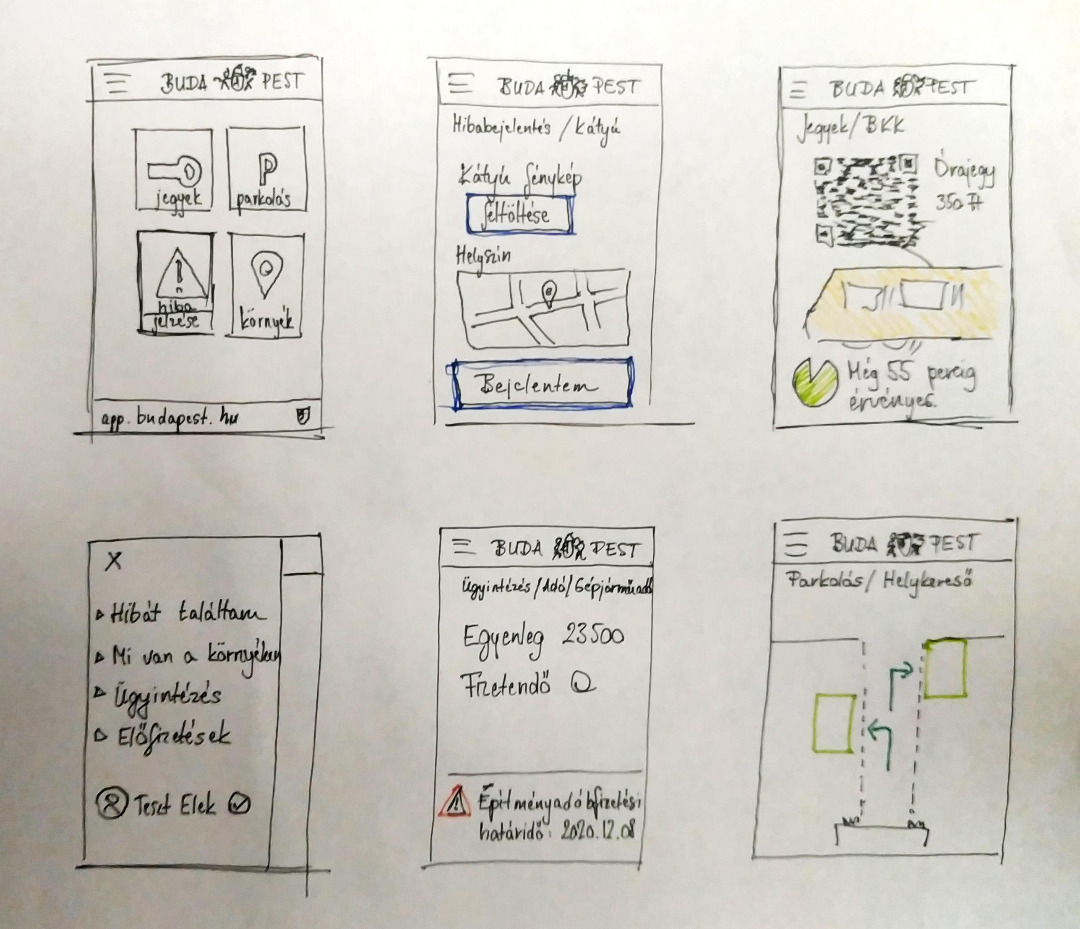 BUDA PEST
jegyek
P
parkolás
hiba
jelzése
környék
app.budapest.hu
BUDA PEST
Hibabejelentés / Kátyú
Kátyú fénykép
feltöltése
Helyszín
Bejelentem
BUDA PEST
Jegyek / BKK
Órajegy
350 Ft
Még 55 percig
érvényes.
X
Hibát találtam
Mi van a környéken
Ügyintézés
Előfizetések
Teszt Elek
BUDA PEST
Ügyintézés / Adó / Gépjárműadó
Egyenleg 23500
Fizetendő 0
Építményadó bfizetési
határidő: 2020.12.08
BUDA PEST
Parkolás / Helykereső